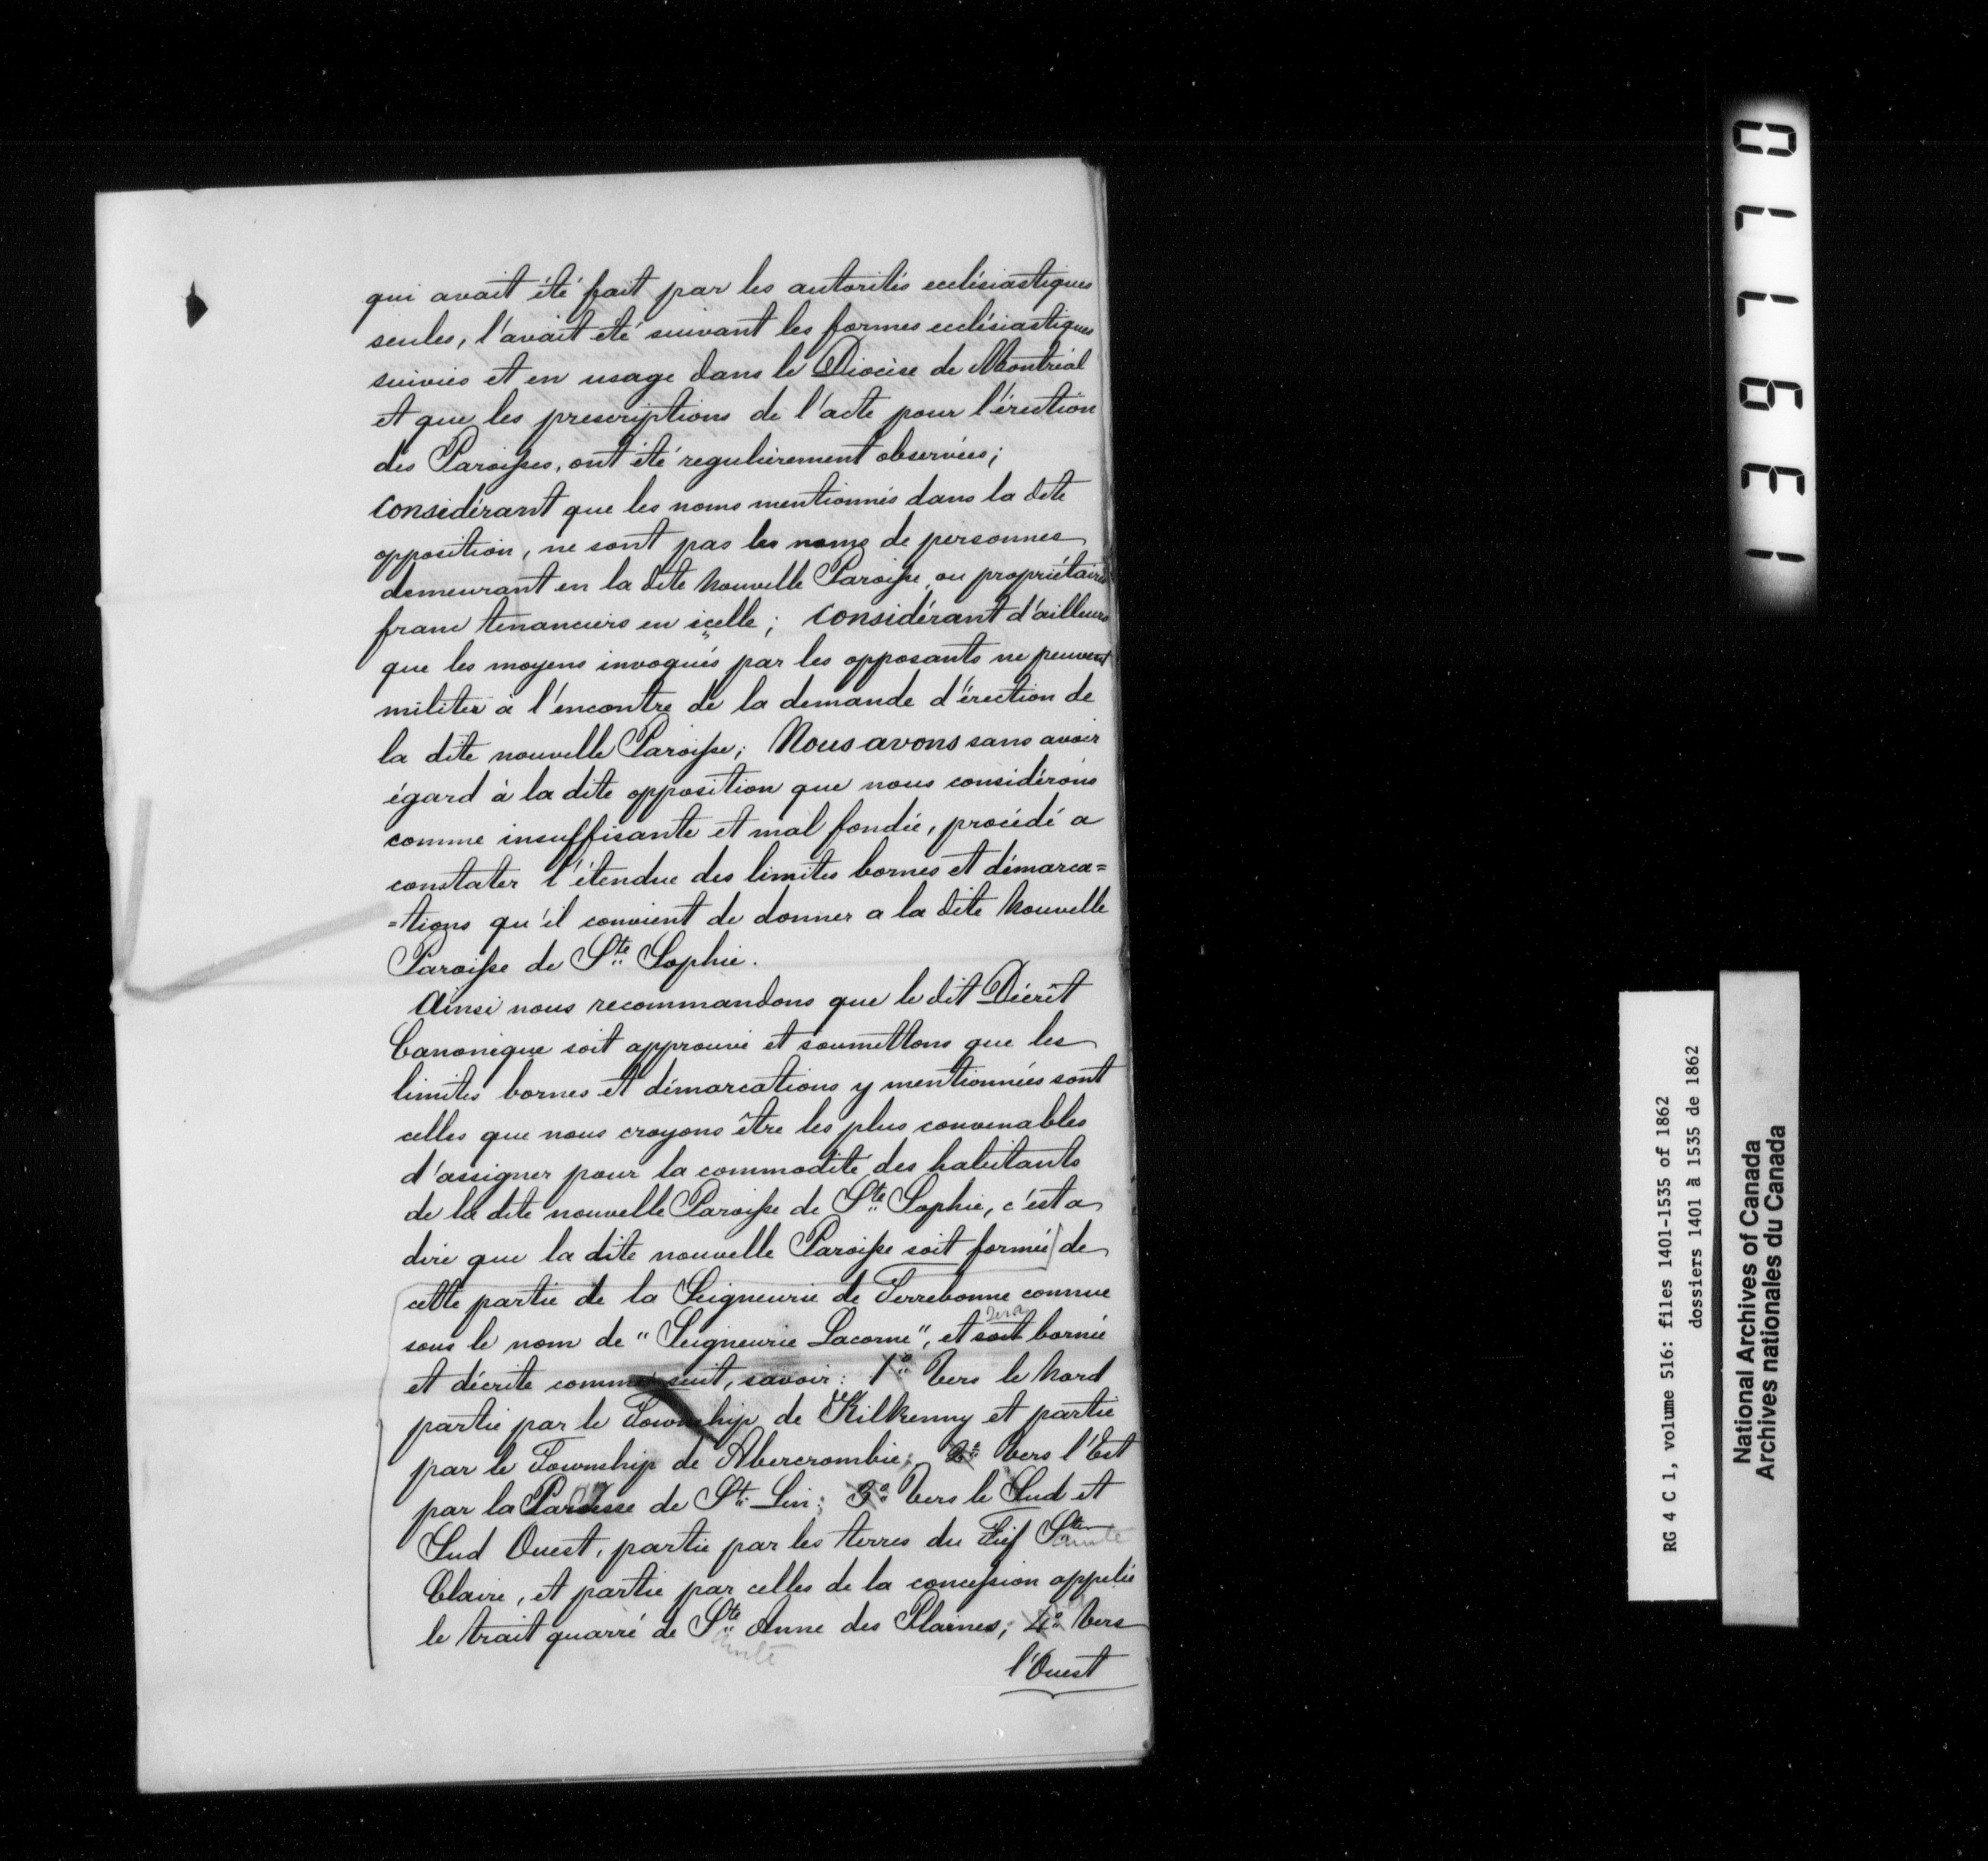 qui avait été fait par les autorités ecclésiastiques
seules, l'avait été suivant les formes ecclésiastiques
suivies et en usage dans le Diocèse de Montréal
et que les prescriptions de l'acte pour l'érection
des Paroisses, ont été regulièrement observées;
Considérant que les noms mentionnés dans la dite
opposition, ne sont pas les noms de personnes
demeurant en la dite Nouvelle Paroisse, ou propriétaires
franc tenanciers en icelle; Considérant d'ailleurs
que les moyens invoqués par les opposants ne peuvent
militer à l'encontre de la demande d'érection de
la dite nouvelle Paroisse; Nous avons sans avoir
égard à la dite opposition que nous considérons
comme insuffisante et mal fondée, procédé a
constater l'étendue des limites bornes et démarca=
=tions qu'il convient de donner a la dite Nouvelle
Paroisse de Ste Sophie.
Ainsi nous recommandons que le dit Décrèt
Canonique soit approuvé et soumettons que les
limites bornes et démarcations y mentionnées sont
celles que nous croyons être les plus convenables
d'assigner pour la commodité des habitants
de la dite nouvelle Paroisse de Ste Sophie, c'est a
dire que la dite nouvelle Paroisse soit formée de
cette partie de la Seigneurie de Terrebonne connue
sous le nom de "Seigneurie Lacorne", et soit sera bornée
et décrite comme suit, savoir: 1° Vers le Nord
partie par le Township de Kilkenny et partie
par le Township de Abercrombie; 2° Vers l'Est
par la Paroisse de St. Lin; 3° Vers le Sud et
Sud Ouest, partie par les terres du Fief Ste
Claire, et partie par celles de la concession appelée
le trait quarré de Ste Anne des Plaines; 4° Vers
l'Ouest
1361770
RG 4 C 1, volume 516: files 1401-1535 of 1862
dossiers 1401 à 1535 de 1862
National Archives of Canada
Archives nationales du Canada